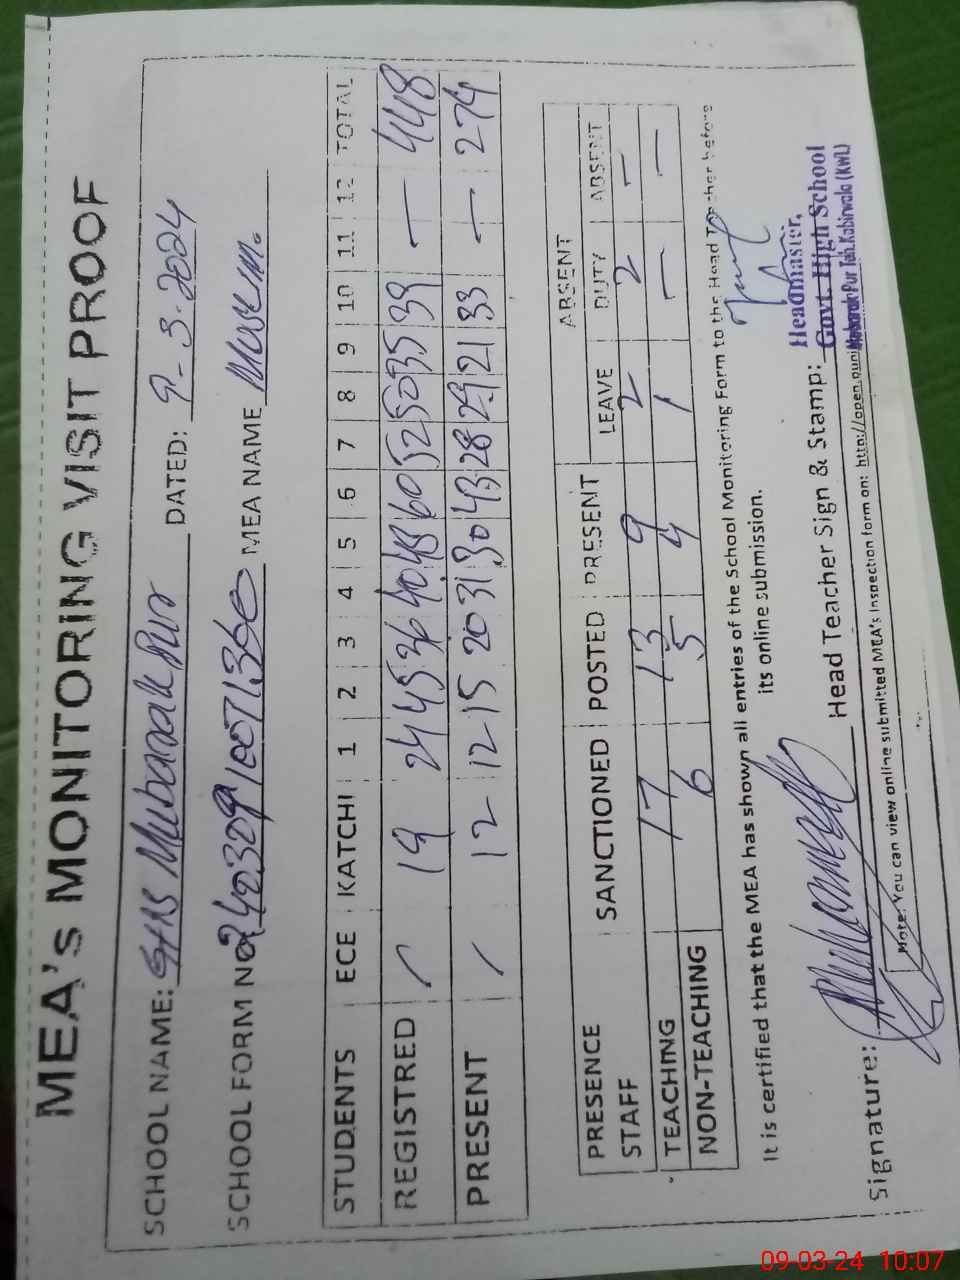 MEA's MONITORING VISIT PROOF
SCHOOL NAME: GHS Mubarak Pur DATED: 9-3-2024
SCHOOL FORM NO MEA NAME
STUDENTS ECE KATCHI 1 2 3 4 5 6 7 8 9 10 11 12 TOTAL
REGISTRED / 19 24 45 36 40 45 60 52 50 35 39 — 448
PRESENT / 12 12 15 20 31 30 43 28 29 21 33 — 274
PRESENCE SANCTIONED POSTED PRESENT ABSENT
STAFF LEAVE DUTY ABSENT
TEACHING 17 13 9 2 2 -
NON-TEACHING 6 5 4 1 — —
It is certified that the MEA has shown all entries of the School Monitoring Form to the Head Teacher before
its online submission.
Signature: Head Teacher Sign & Stamp:
Headmaster,
Govt. High School
Mubarak Pur Teh. Kabirwala (KWL)
Note: You can view online submitted MEA's Inspection form on: http://open.punj
09-03-24 10:07